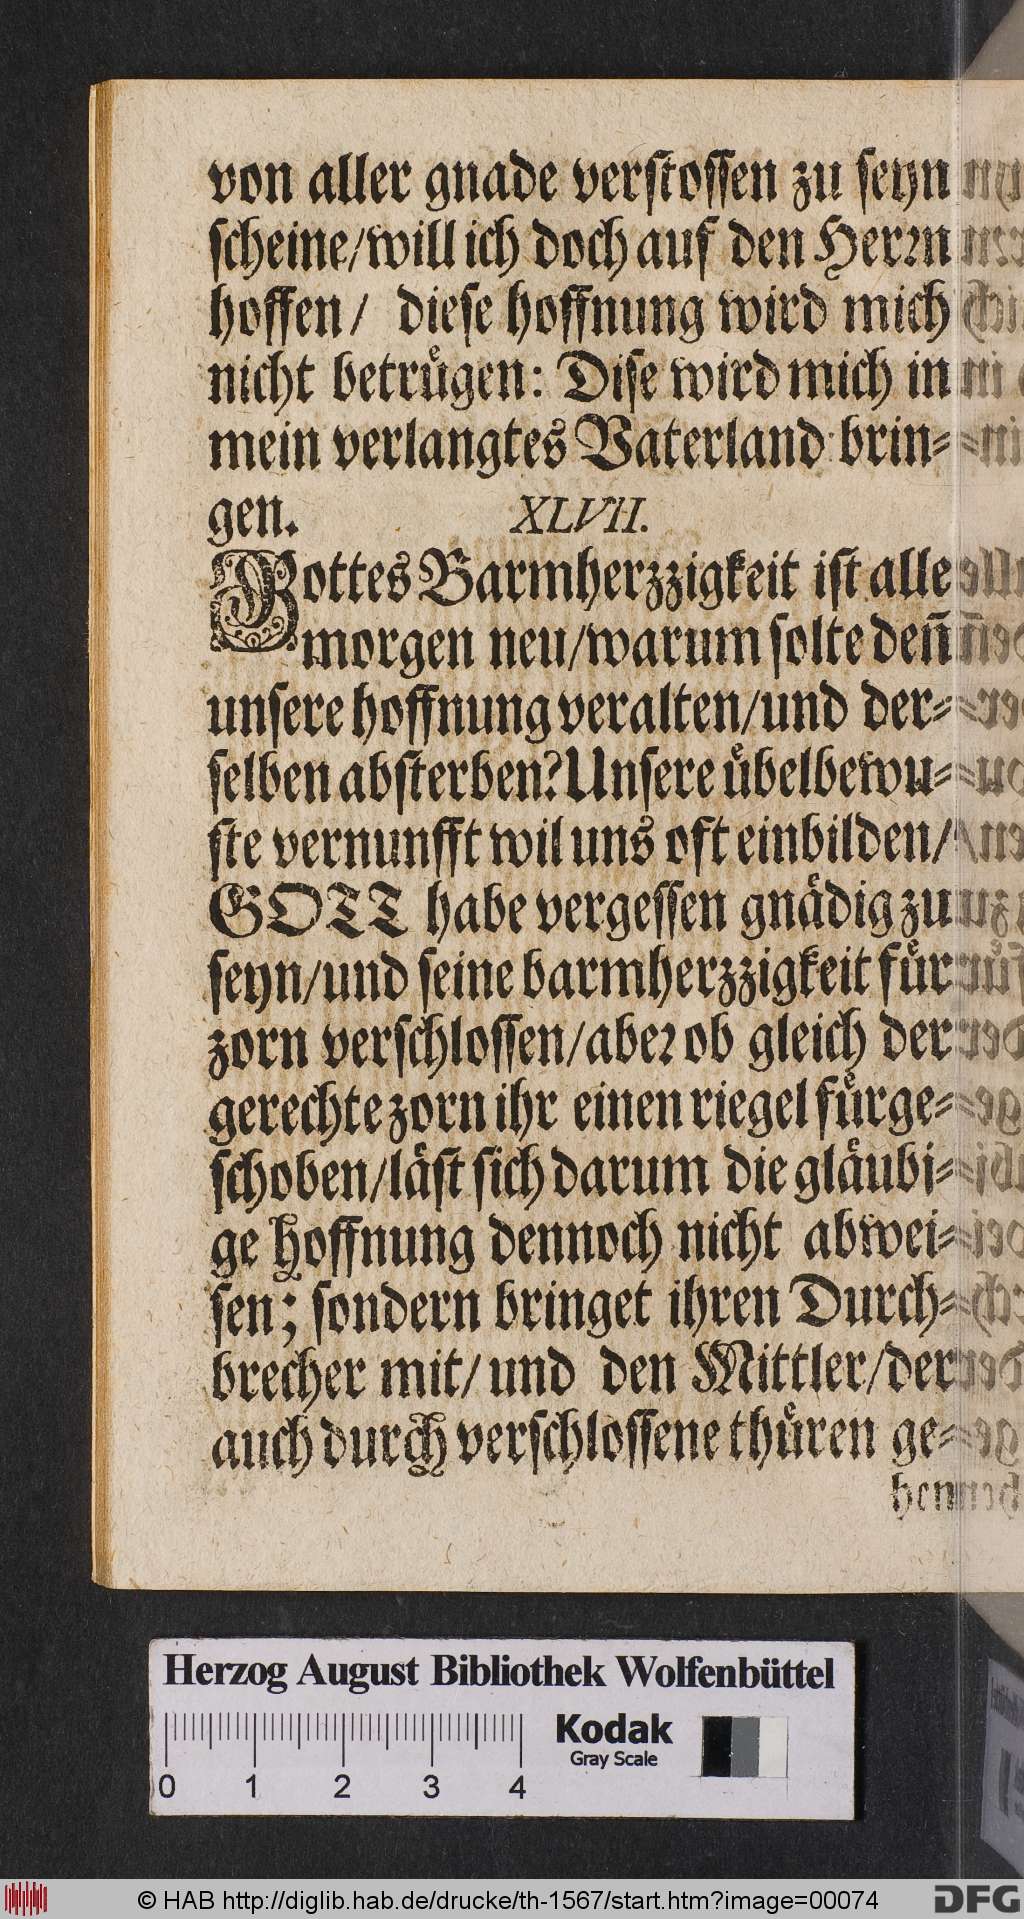 von aller gnade verstossen zu seyn
scheine/will ich doch auf den Herꝛn
hoffen/ diese hoffnung wird mich
nicht betruͤgen: Dise wird mich in
mein verlangtes Vaterland brin⸗
gen. XLVII.
Gottes Barmherzzigkeit ist alle
morgen neu/warum solte den̄
unsere hoffnung veralten/und der⸗
selben absterben? Unsere uͤbelbewu⸗
ste vernunfft wil uns oft einbilden/
GOTT habe vergessen gnaͤdig zu
seyn/und seine barmherzzigkeit fuͤr
zorn verschlossen/abeꝛ ob gleich der
gerechte zorn ihr einen riegel fuͤrge⸗
schoben/laͤst sich darum die glaͤubi⸗
ge Hoffnung dennoch nicht abwei⸗
sen; sondern bringet ihren Durch⸗
brecher mit/ und den Mittler/der
auch durch verschlossene thuͤren ge⸗
hen
Herzog August Bibliothek Wolfenbüttel
0 1 2 3 4
Kodak
Gray Scale
© HAB http://diglib.hab.de/drucke/th-1567/start.htm?image=00074
DFG